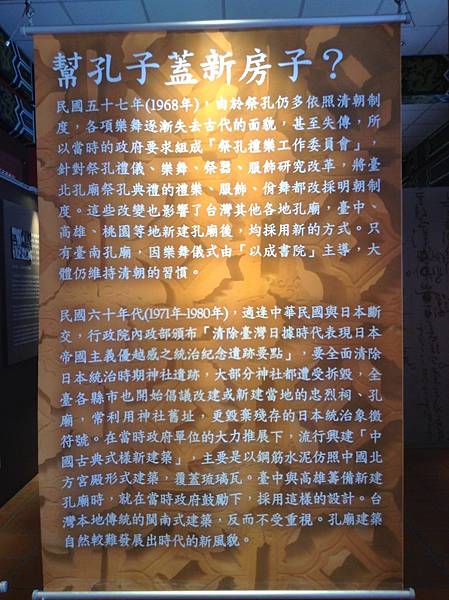 幫孔子蓋新房子？
民國五十七年(1968年)，由於祭孔仍多依照清朝制
度，各項樂舞逐漸失去古代的面貌，甚至失傳，所
以當時的政府要求組成「祭孔禮樂工作委員會」，
針對祭孔禮儀、樂舞、祭器、服飾研究改革，將臺
北孔廟祭孔典禮的禮樂、服飾、佾舞都改採明朝制
度。這些改變也影響了台灣其他各地孔廟，臺中、
高雄、桃園等地新建孔廟後，均採用新的方式。只
有臺南孔廟，因樂舞儀式由「以成書院」主導，大
體仍維持清朝的習慣。
民國六十年代(1971年-1980年)，適逢中華民國與日本斷
交，行政院內政部頒布「清除臺灣日據時代表現日本
帝國主義優越感之統治紀念遺跡要點」，要全面清除
日本統治時期神社遺跡，大部分神社都遭受拆毀，全
臺各縣市也開始倡議改建或新建當地的忠烈祠、孔
廟，常利用神社舊址，更毀棄殘存的日本統治象徵
符號。在當時政府單位的大力推展下，流行興建「中
國古典式樣新建築」，主要是以鋼筋水泥仿照中國北
方宮殿形式建築，覆蓋琉璃瓦。臺中與高雄籌備新建
孔廟時，就在當時政府鼓勵下，採用這樣的設計。台
灣本地傳統的閩南式建築，反而不受重視。孔廟建築
自然較難發展出時代的新風貌。